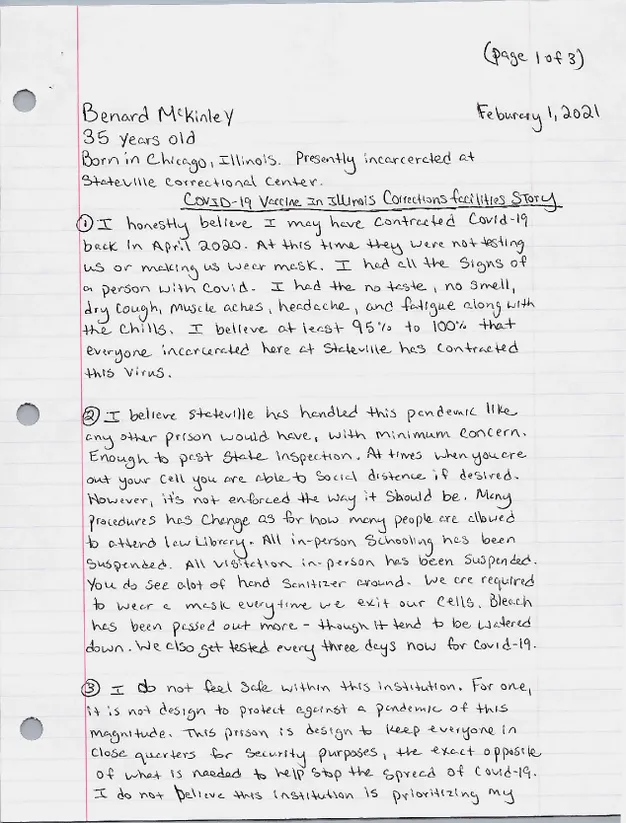 (page 1 of 3)
Benard McKinley
Feburary 1, 2021
35 years old
Born in Chicago, Illinois. Presently incarcerated at
Stateville Correctional Center.
COVID-19 Vaccine In Illinois Corrections facilities Story
① I honestly believe I may have contracted Covid-19
back in April 2020. At this time they were not testing
us or making us wear mask. I had all the signs of
a person with Covid. I had the no taste, no smell,
dry cough, muscle aches, headache, and fatigue along with
the chills. I believe at least 95% to 100% that
everyone incarcerated here at Stateville has contracted
this virus.
② I believe Stateville has handled this pandemic like
any other prison would have, with minimum concern.
Enough to past State inspection. At times when you are
out your cell you are able to Social distance if desired.
However, it's not enforced the way it should be. Many
procedures has change as for how many people are allowed
to attend law Library. All in-person Schooling has been
Suspended. All visitation in-person has been Suspended.
You do see alot of hand Sanitizer around. We are required
to wear a mask everytime we exit our cells. Bleach
has been passed out more - though it tend to be watered
down. We also get tested every three days now for Covid-19.
③ I do not feel safe within this institution. For one,
it is not design to protect against a pandemic of this
magnitude. This prison is design to keep everyone in
close quarters for Security purposes, the exact opposite
of what is needed to help stop the spread of Covid-19.
I do not believe this institution is prioritizing my